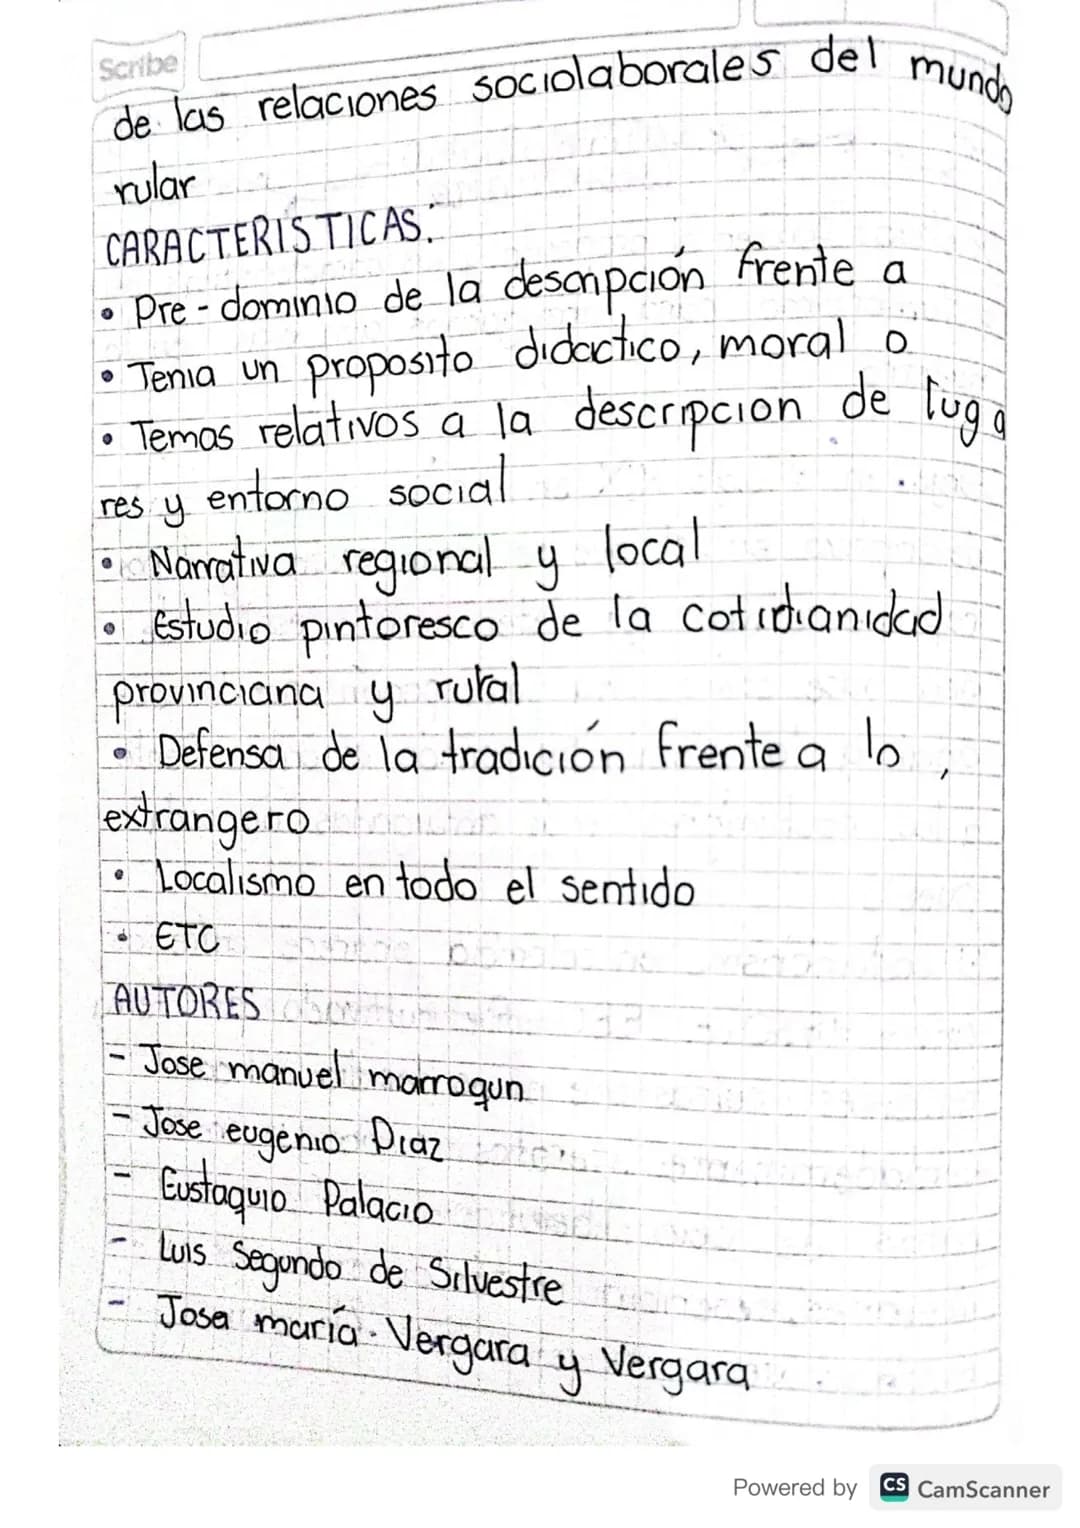 Scribe
de las relaciones sociolaborales del mundo
rular
CARACTERISTICAS:
• Pre-dominio de la descripción frente a
• Tenia un proposito didactico, moral o
• Temas relativos a la descripcion de luga
res y entorno social
• Narrativa regional y local
• Estudio pintoresco de la cotidianidad
provinciana y rural
• Defensa de la tradición frente a lo
extrangero
• Localismo en todo el sentido
• ETC
AUTORES
- Jose manuel marroqun
- Jose eugenio Diaz
- Eustaquio Palacio
- Luis Segundo de Silvestre
- Josa maría Vergara y Vergara
Powered by CS CamScanner